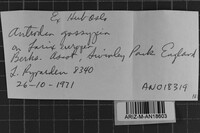 Ex Herb Oslo
Antrodia gossypia
on Larix
Berks. Ascot, Swinley Park England
L. Ryvarden 9340
26-10-1971 AN018319
ARIZ-M-AN18603